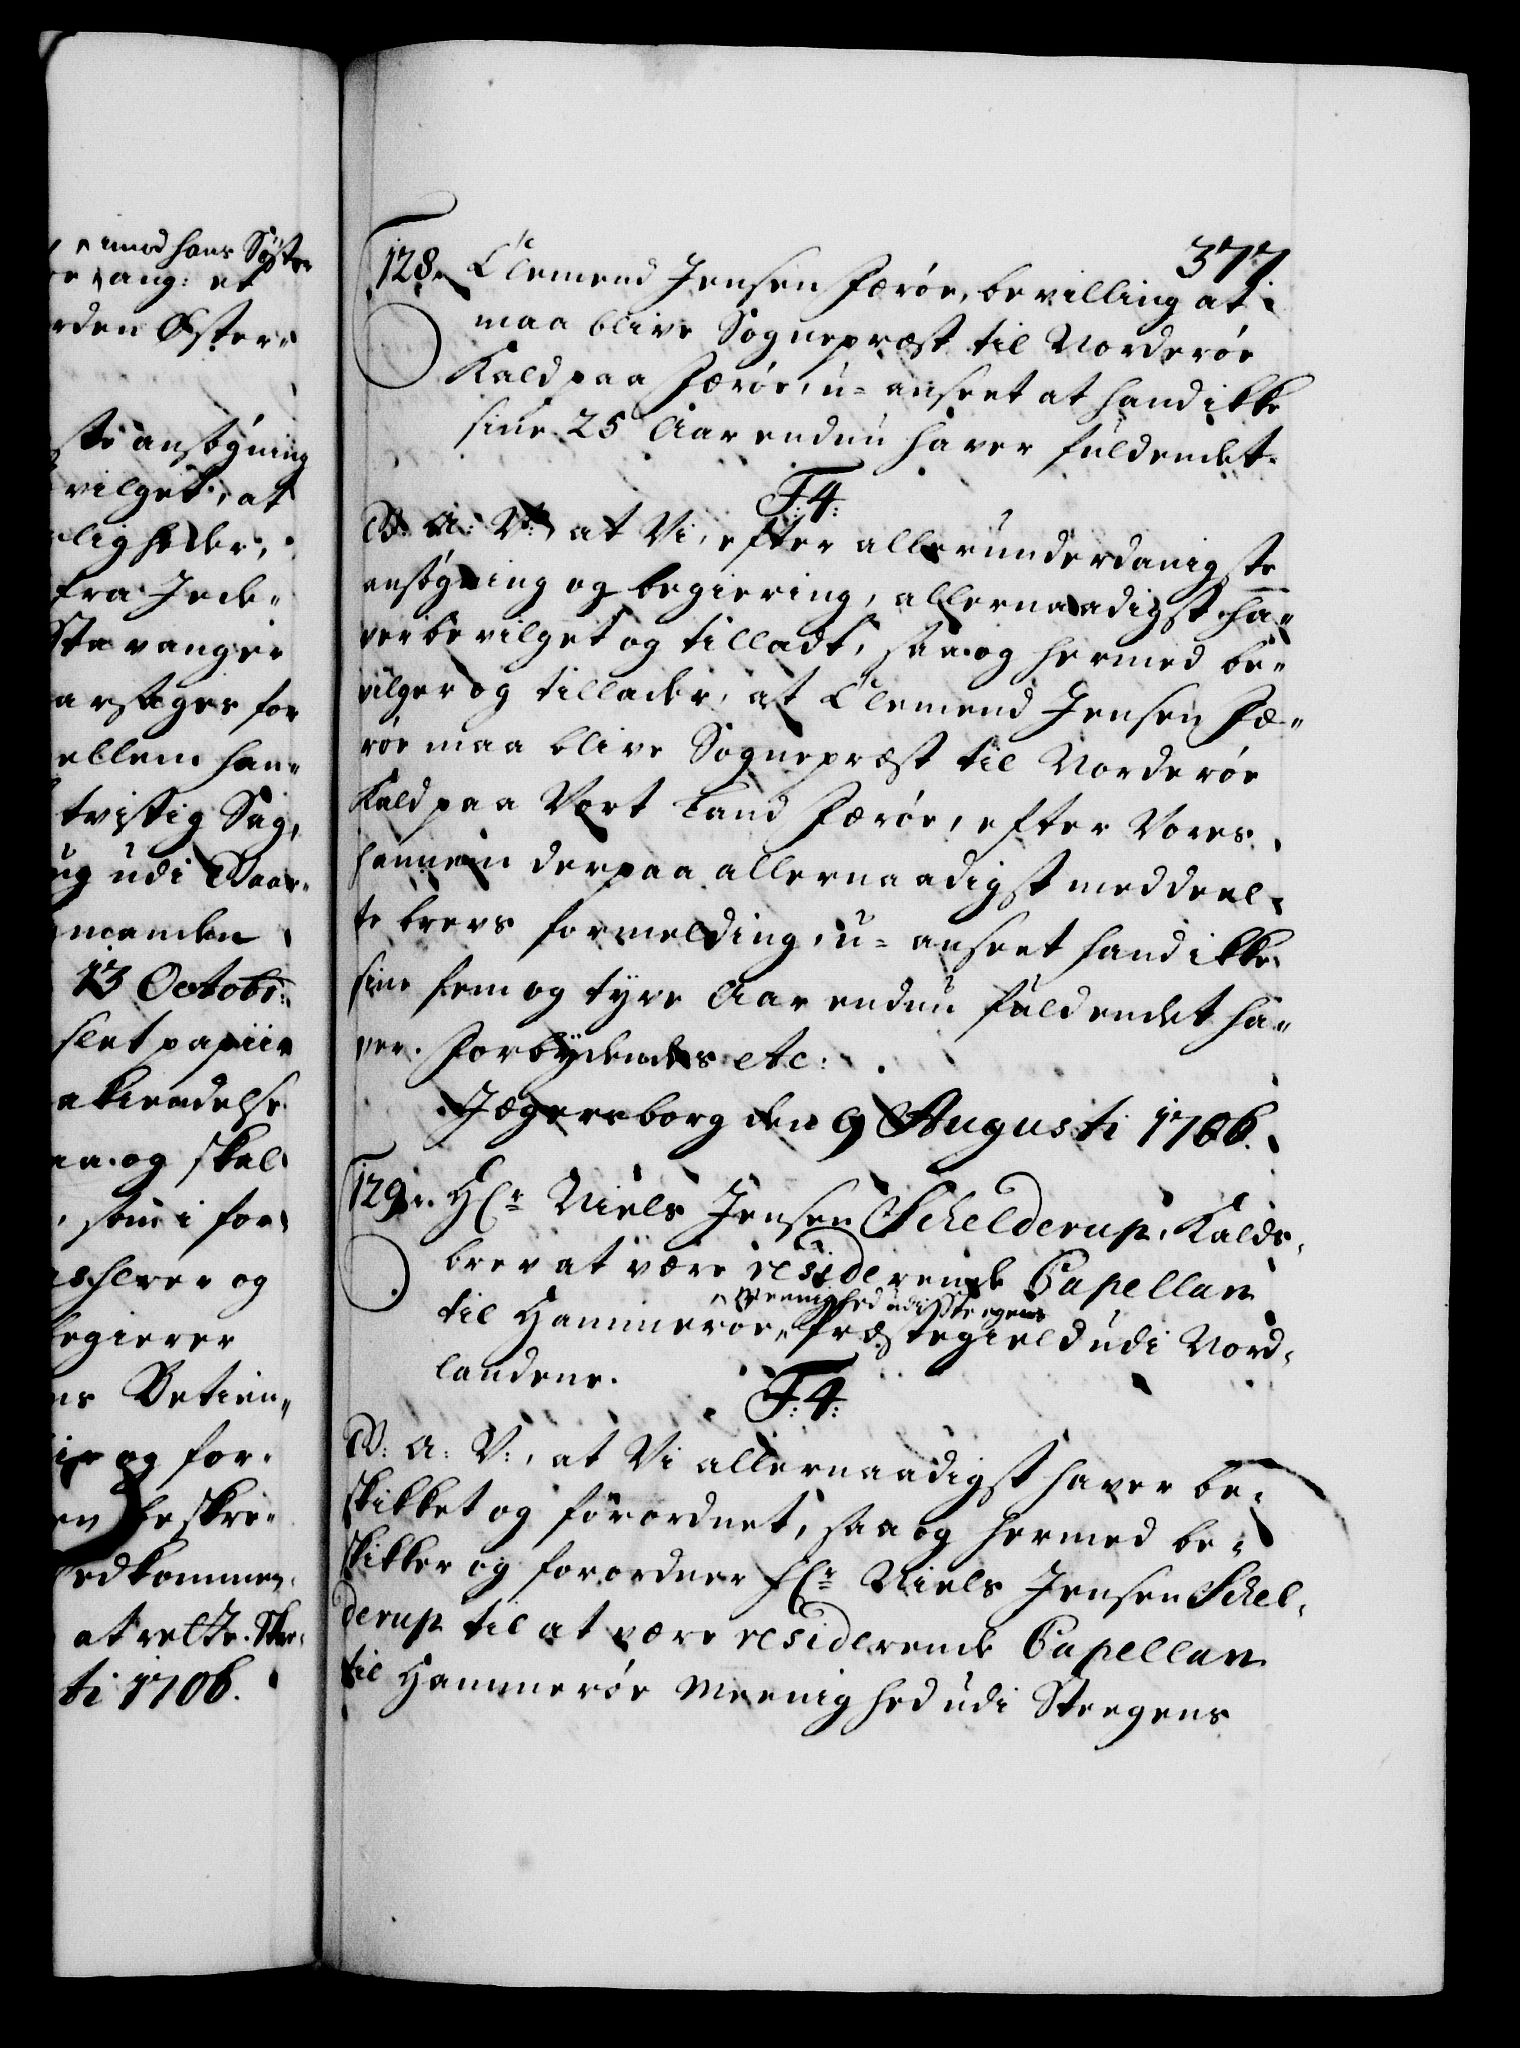 med hans Søster
ang: et
rden Øster-
ste ansøgning
vilget, at
ligheder,
fra Jede-
Stavanger
arsages for
ellem han-
tvistig Sag,
ug udi Baar-
manden
13 Octobr:
slet papiir
akiendelse
aa og skal
, som i for
og
begierer
ns Betien-
og for-
en beskre-
edkommen-
at rette.
ti 1706.
377
128. Clemend Jensen Færøe, bevilling at
maa blive Sognepræst til Norderøe
Kald paa Færøe, u-anseet at hand ikke
sine 25 Aar endnu haver fuldendet.
F:4:
W: A: V: at Vi, efter allerunderdanigste
ansøgning og begiering, allernaadigst ha-
ver bevilget og tilladt, saa og hermed be-
vilger og tillader, at Clemend Jensen Fæ-
røe maa blive Sognepræst til Norderøe
Kald paa Vort Land Færøe, efter Vores
hannem derpaa allernaadigst meddeel-
te brevs formelding, u-anseet hand ikke
sine fem og tyve Aar endnu fuldendet ha-
ver. Forbydendes etc:
Jægersborg den 9 Augusti 1706.
129. Hr Niels Jensen Schelderup, Kalds-
brev at være residerende Capellan
Meenighed udi Steegens
til Hammerøe Præstegield udi Nord-
landene.
F:4:
W: A: V:, at Vi allernaadigst haver be-
skikket og forordnet, saa og hermed be-
skikker og forordner Hr Niels Jensen Schel-
derup til at være residerende Capellan
til Hammerøe Meenighed udi Steegens